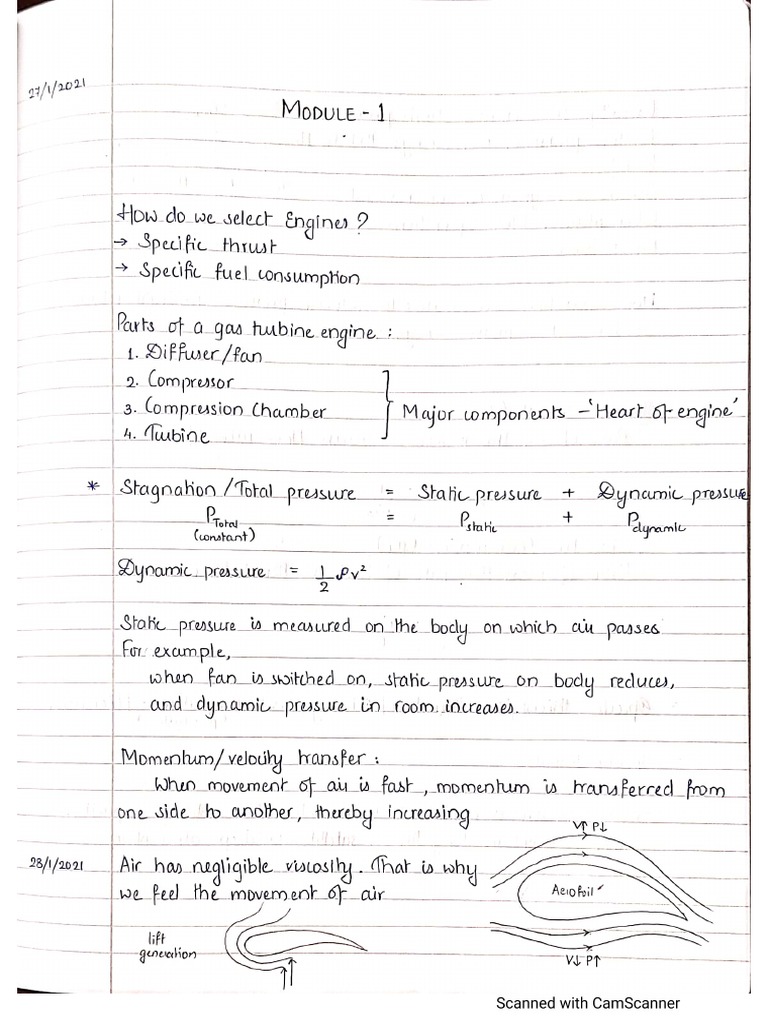 27/1/2021
MODULE - 1
How do we select Engines?
→ Specific thrust
→ Specific fuel consumption
Parts of a gas turbine engine :
1. Diffuser/fan
2. Compressor
3. Compression Chamber } Major components - 'Heart of engine'
4. Turbine
* Stagnation / Total pressure = Static pressure + Dynamic pressure
P Total = P static + P dynamic
(constant)
Dynamic pressure = 1/2 ρv²
Static pressure is measured on the body on which air passes
For example,
when fan is switched on, static pressure on body reduces,
and dynamic pressure in room increases.
Momentum/velocity transfer :
When movement of air is fast, momentum is transferred from
one side to another, thereby increasing
V↑ P↓
28/1/2021 Air has negligible viscosity. That is why
we feel the movement of air
Aerofoil
lift
generation
V↓ P↑
Scanned with CamScanner